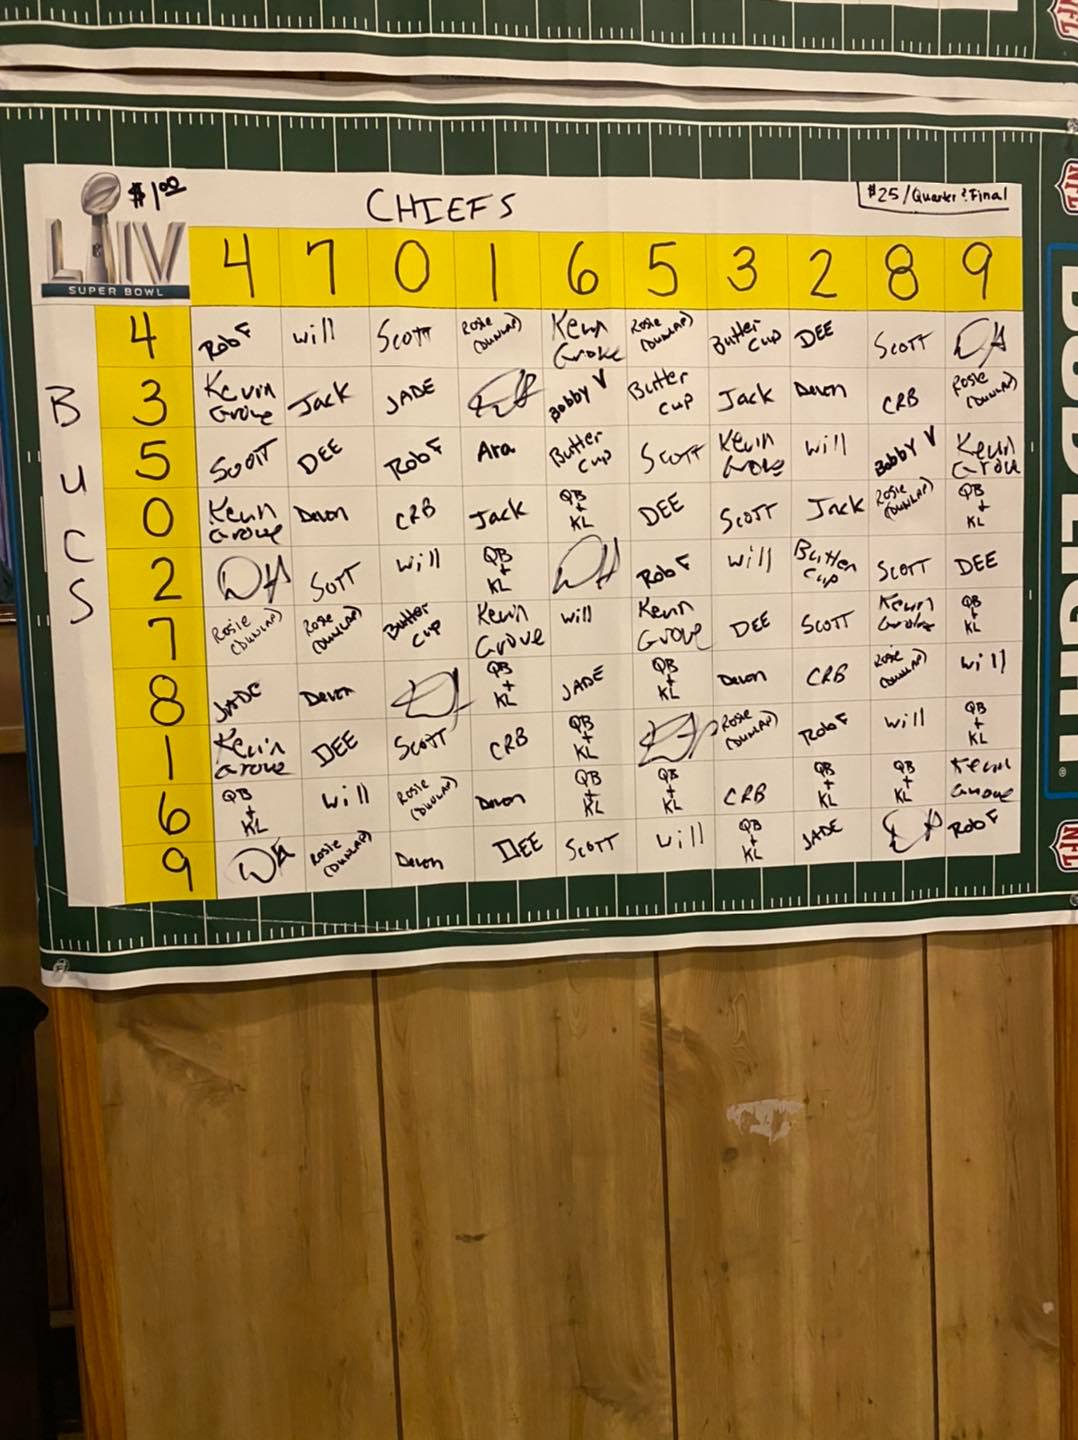 NFL
LIV
SUPER BOWL
$1.00
CHIEFS
$25/Quarter & Final
NFL
4 7 0 1 6 5 3 2 8 9
BUCS
4 Rob F Will Scott Rosie (Dunlap) Kevin Grove Rosie (Dunlap) Butter Cup DEE Scott DH
3 Kevin Grove Jack JADE Bobby V Butter Cup Jack Devon CRB Rosie (Dunlap)
5 Scott DEE Rob F Ara Butter Cup Scott Kevin Grove Will Bobby V Kevin Grove
0 Kevin Grove Devon CRB Jack QB + KL DEE Scott Jack Rosie (Dunlap) QB + KL
2 DH Scott Will QB + KL DH Rob F Will Butter Cup Scott DEE
7 Rosie (Dunlap) Rosie (Dunlap) Butter Cup Kevin Grove Will Kevin Grove DEE Scott Kevin Grove QB + KL
8 JADE Devon QB + KL JADE QB + KL Devon CRB Rosie (Dunlap) Will
1 Kevin Grove DEE Scott CRB QB + KL Rosie (Dunlap) Rob F Will QB + KL
6 QB + KL Will Rosie (Dunlap) Devon QB + KL QB + KL CRB QB + KL QB + KL Kevin Grove
9 DH Rosie (Dunlap) Devon DEE Scott Will QB + KL JADE DH Rob F
BUD LIGHT
NFL